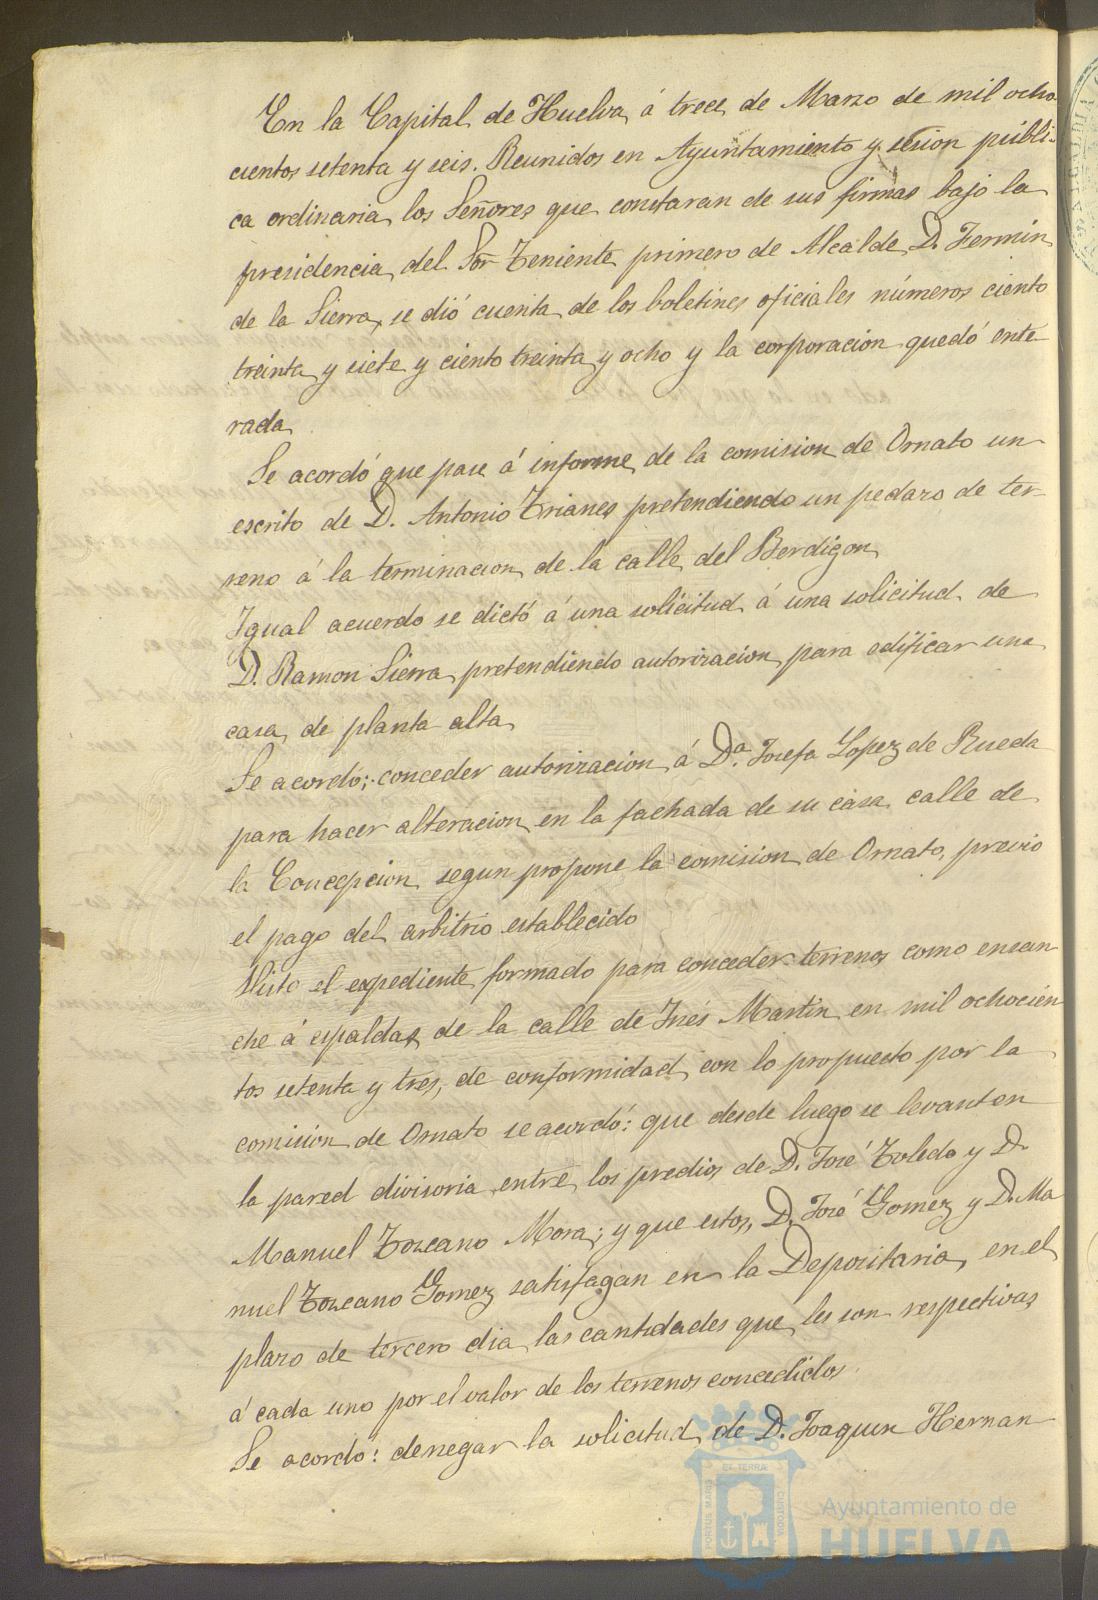 En la Capital de Huelva á trece de Marzo de mil ocho
cientos setenta y seis. Reunidos en Ayuntamiento y sesion públi-
ca ordinaria los Señores que constaran de sus firmas bajo la
presidencia del Sor Teniente primero de Alcalde D. Fermin
de la Sierra, se dió cuenta de los boletines oficiales números ciento
treinta y siete y ciento treinta y ocho y la corporacion quedó ente
rada.
Se acordó que pase á informe de la comision de Ornato un
escrito de D. Antonio Trianes pretendiendo un pedazo de ter-
reno á la terminacion de la calle del Berdigon
Igual acuerdo se dictó á una solicitud á una solicitud de
D. Ramon Sierra pretendiendo autorizacion para edificar una
casa de planta alta
Se acordó; conceder autorizacion á Da. Josefa Lopez de Rueda
para hacer alteracion en la fachada de su casa calle de
la Concepcion segun propone la comision de Ornato, previo
el pago del arbitrio establecido
Visto el expediente formado para conceder terrenos como ensan
che á espaldas de la calle de Inés Martin en mil ochocien
tos setenta y tres, de conformidad con lo propuesto por la
comision de Ornato se acordó: que desde luego se levanten
la pared divisoria entre los predios de D. José Toledo y D.
Manuel Toscano Mora; y que estos, D. José Gomez y D. Ma
nuel Toscano Gomez satisfagan en la Depositaria, en el
plazo de tercero dia las cantidades que les son respectivas
á cada uno por el valor de los terrenos concedidos.
Se acordó: denegar la solicitud de D. Joaquin Hernan
PORTUS MARIS ET TERRAE CUSTODIA
Ayuntamiento de
HUELVA